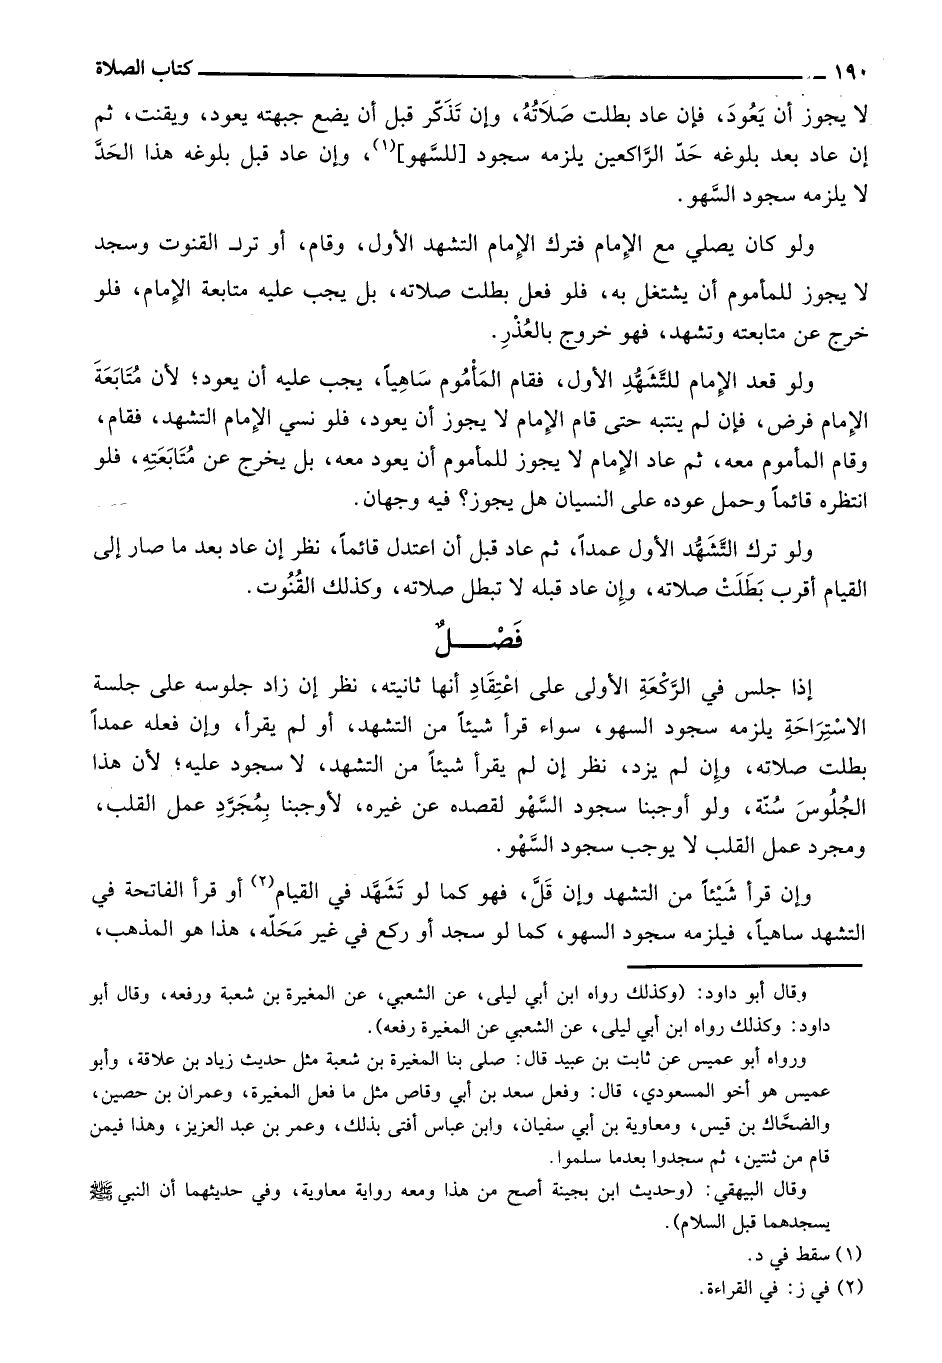 ١٩٠ كتاب الصلاة
لا يجوز أن يَعُودَ، فإن عاد بطلت صَلَاتُهُ، وإن تَذَكّر قبل أن يضع جبهته يعود، ويقنت، ثم
إن عاد بعد بلوغه حَدّ الرَّاكعين يلزمه سجود [للسَّهو](١)، وإن عاد قبل بلوغه هذا الحَدَّ
لا يلزمه سجود السَّهو.
ولو كان يصلي مع الإمام فترك الإمام التشهد الأول، وقام، أو ترك القنوت وسجد
لا يجوز للمأموم أن يشتغل به، فلو فعل بطلت صلاته، بل يجب عليه متابعة الإمام، فلو
خرج عن متابعته وتشهد، فهو خروج بالعُذْرِ.
ولو قعد الإمام للتَّشَهُّدِ الأول، فقام المَأْمُوم سَاهِياً، يجب عليه أن يعود؛ لأن مُتَابَعَةَ
الإمام فرض، فإن لم ينتبه حتى قام الإمام لا يجوز أن يعود، فلو نسي الإمام التشهد، فقام،
وقام المأموم معه، ثم عاد الإمام لا يجوز للمأموم أن يعود معه، بل يخرج عن مُتَابَعَتِهِ، فلو
انتظره قائماً وحمل عوده على النسيان هل يجوز؟ فيه وجهان.
ولو ترك التَّشَهُّد الأول عمداً، ثم عاد قبل أن اعتدل قائماً، نظر إن عاد بعد ما صار إلى
القيام أقرب بَطَلَتْ صلاته، وإن عاد قبله لا تبطل صلاته، وكذلك القُنُوت.
فَصْـــلٌ
إذا جلس في الرَّكْعَةِ الأولى على اعْتِقَادِ أنها ثانيته، نظر إن زاد جلوسه على جلسة
الاسْتِرَاحَةِ يلزمه سجود السهو، سواء قرأ شيئاً من التشهد، أو لم يقرأ، وإن فعله عمداً
بطلت صلاته، وإن لم يزد، نظر إن لم يقرأ شيئاً من التشهد، لا سجود عليه؛ لأن هذا
الجُلُوسَ سُنّة، ولو أوجبنا سجود السَّهْو لقصده عن غيره، لأوجبنا بِمُجَرَّدِ عمل القلب،
ومجرد عمل القلب لا يوجب سجود السَّهْو.
وإن قرأ شَيْئاً من التشهد وإن قَلَّ، فهو كما لو تَشَهَّد في القيام(٢) أو قرأ الفاتحة في
التشهد ساهياً، فيلزمه سجود السهو، كما لو سجد أو ركع في غير مَحَلّه، هذا هو المذهب،
وقال أبو داود: (وكذلك رواه ابن أبي ليلى، عن الشعبي، عن المغيرة بن شعبة ورفعه، وقال أبو
داود: وكذلك رواه ابن أبي ليلى، عن الشعبي عن المغيرة رفعه).
ورواه أبو عميس عن ثابت بن عبيد قال: صلى بنا المغيرة بن شعبة مثل حديث زياد بن علاقة، وأبو
عميس هو أخو المسعودي، قال: وفعل سعد بن أبي وقاص مثل ما فعل المغيرة، وعمران بن حصين،
والضحَّاك بن قيس، ومعاوية بن أبي سفيان، وابن عباس أفتى بذلك، وعمر بن عبد العزيز، وهذا فيمن
قام من ثنتين، ثم سجدوا بعدما سلموا.
وقال البيهقي: (وحديث ابن بجينة أصح من هذا ومعه رواية معاوية، وفي حديثهما أن النبي ﷺ
يسجدهما قبل السلام).
(١) سقط في د.
(٢) في ز: في القراءة.